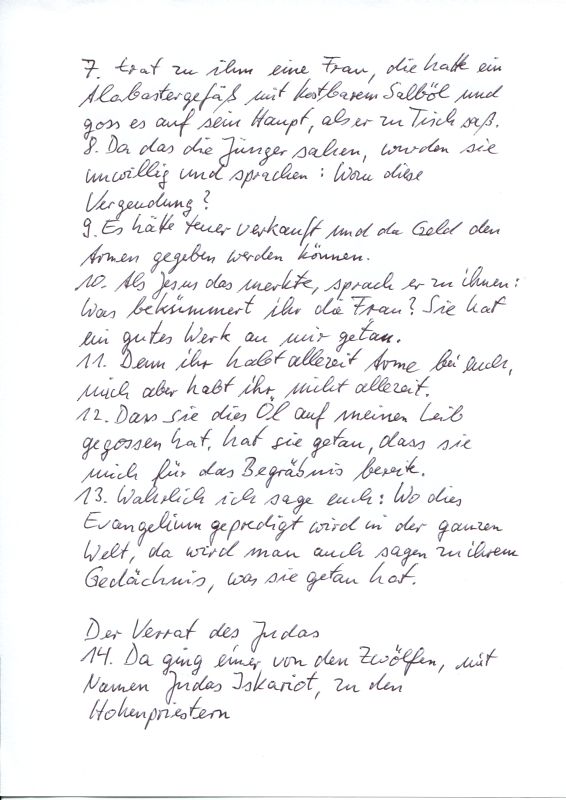 7. trat zu ihm eine Frau, die hatte ein
Alabastergefäß mit kostbarem Salböl und
goss es auf sein Haupt, als er zu Tisch saß.
8. Da das die Jünger sahen, wurden sie
unwillig und sprachen: Wozu diese
Vergeudung?
9. Es hätte teuer verkauft und da Geld den
Armen gegeben werden können.
10. Als Jesus das merkte, sprach er zu ihnen:
Was bekümmert ihr die Frau? Sie hat
ein gutes Werk an mir getan.
11. Denn ihr habt allezeit Arme bei euch,
mich aber habt ihr nicht allezeit.
12. Dass sie dies Öl auf meinen Leib
gegossen hat, hat sie getan, dass sie
mich für das Begräbnis bereite.
13. Wahrlich ich sage euch: Wo dies
Evangelium gepredigt wird in der ganzen
Welt, da wird man auch sagen zu ihrem
Gedächnis, was sie getan hat.
Der Verrat des Judas
14. Da ging einer von den Zwölfen, mit
Namen Judas Iskariot, zu den
Hohenpriestern